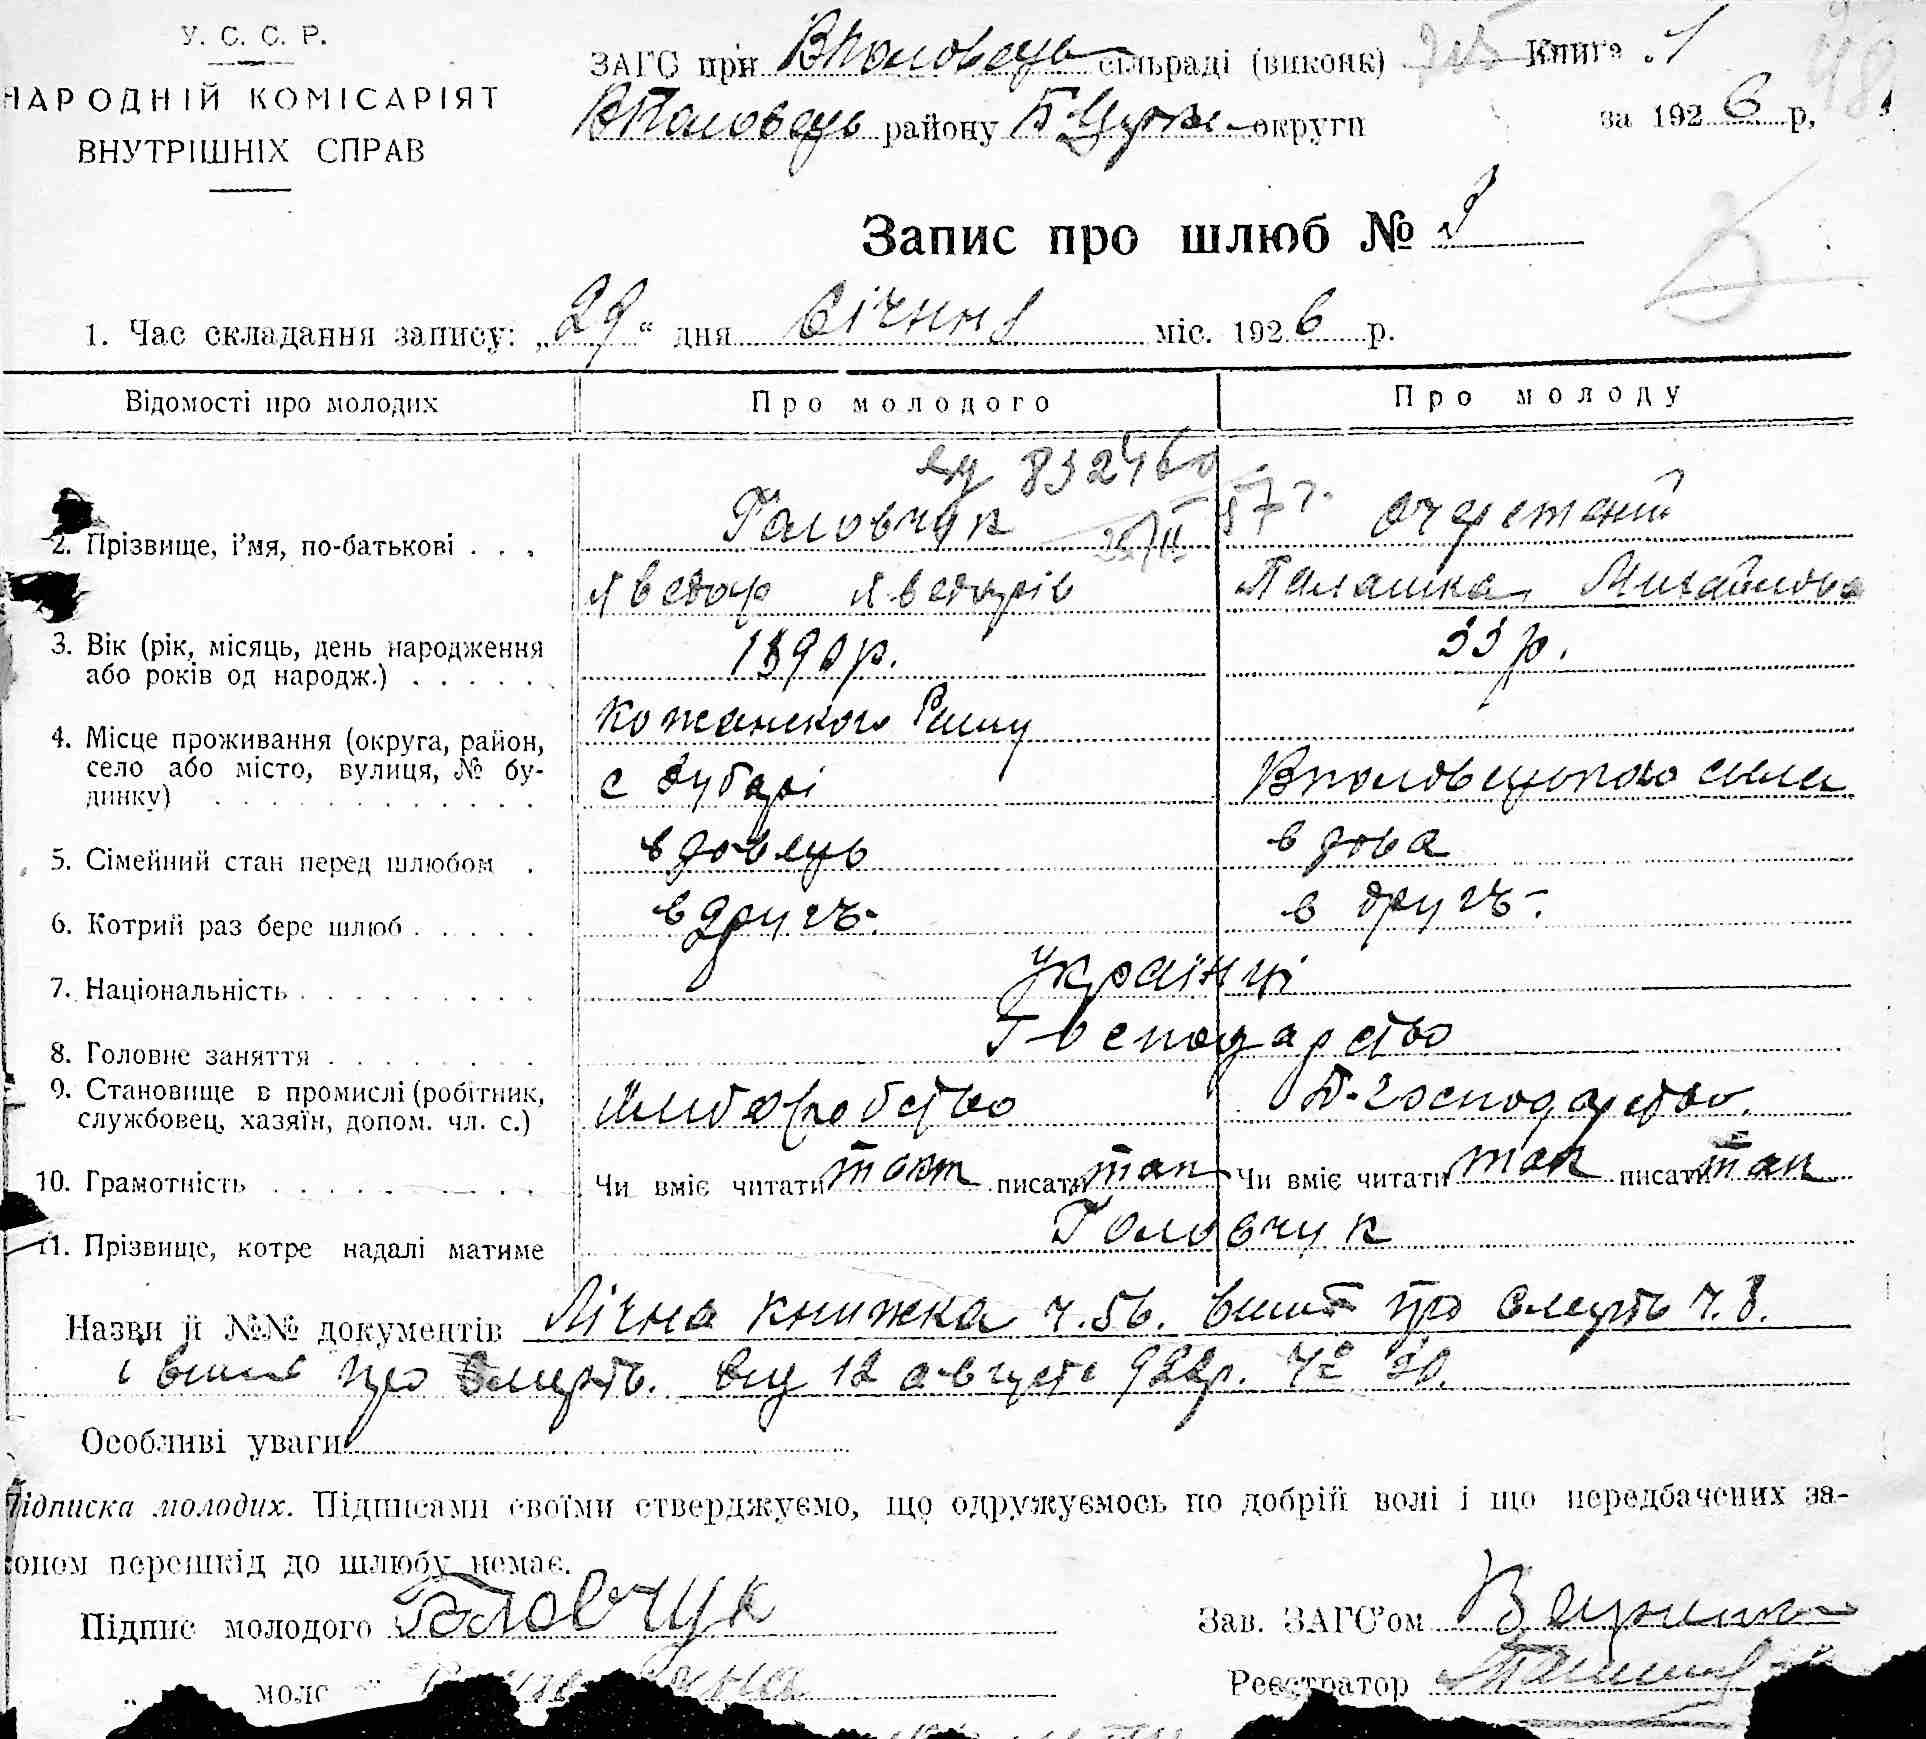 У. С. С. Р.
НАРОДНІЙ КОМІСАРІЯТ
ВНУТРІШНІХ СПРАВ
ЗАГС при ВПоловець сільраді (виконк) Книга 1
ВПоловець району Б Церк округи за 1926 р,
Запис про шлюб №
1. Час складання запису: „29“ дня січня міс. 1926 р.
Відомості про молодих Про молодого Про молоду
2. Прізвище, і'мя, по-батькові . . . Головчук Очеретний
Хведор Хведорів Палашка Михайлова
3. Вік (рік, місяць, день народження або років од народж.) 1890 р. 33 р.
4. Місце проживання (округа, район, село або місто, вулиця, № будинку) Кожанского Раину
с Зубарі ВПоловецького села
5. Сімейний стан перед шлюбом . вдовець вдова
6. Котрий раз бере шлюб в другъ. в другъ.
7. Національність українці
8. Головне заняття Господарство
9. Становище в промислі (робітник, службовец, хазяїн, допом. чл. с.) Хліборобство Д-господарство.
10. Грамотність Чи вміє читати так писати так Чи вміє читати так писати так
11. Прізвище, котре надалі матиме Головчук
Назви й №№ документів Лічна книжка ч. 56. випис про смерть ч. 8.
і випис про смерть. від 12 августа 922р. Ч° 30.
Особливі уваги
Підписка молодих. Підписами своїми стверджуємо, що одружуємось по добрій волі і що передбачених за-
коном перешкід до шлюбу немає.
Підпис молодого Головчук Зав. ЗАГС'ом
Реєстратор